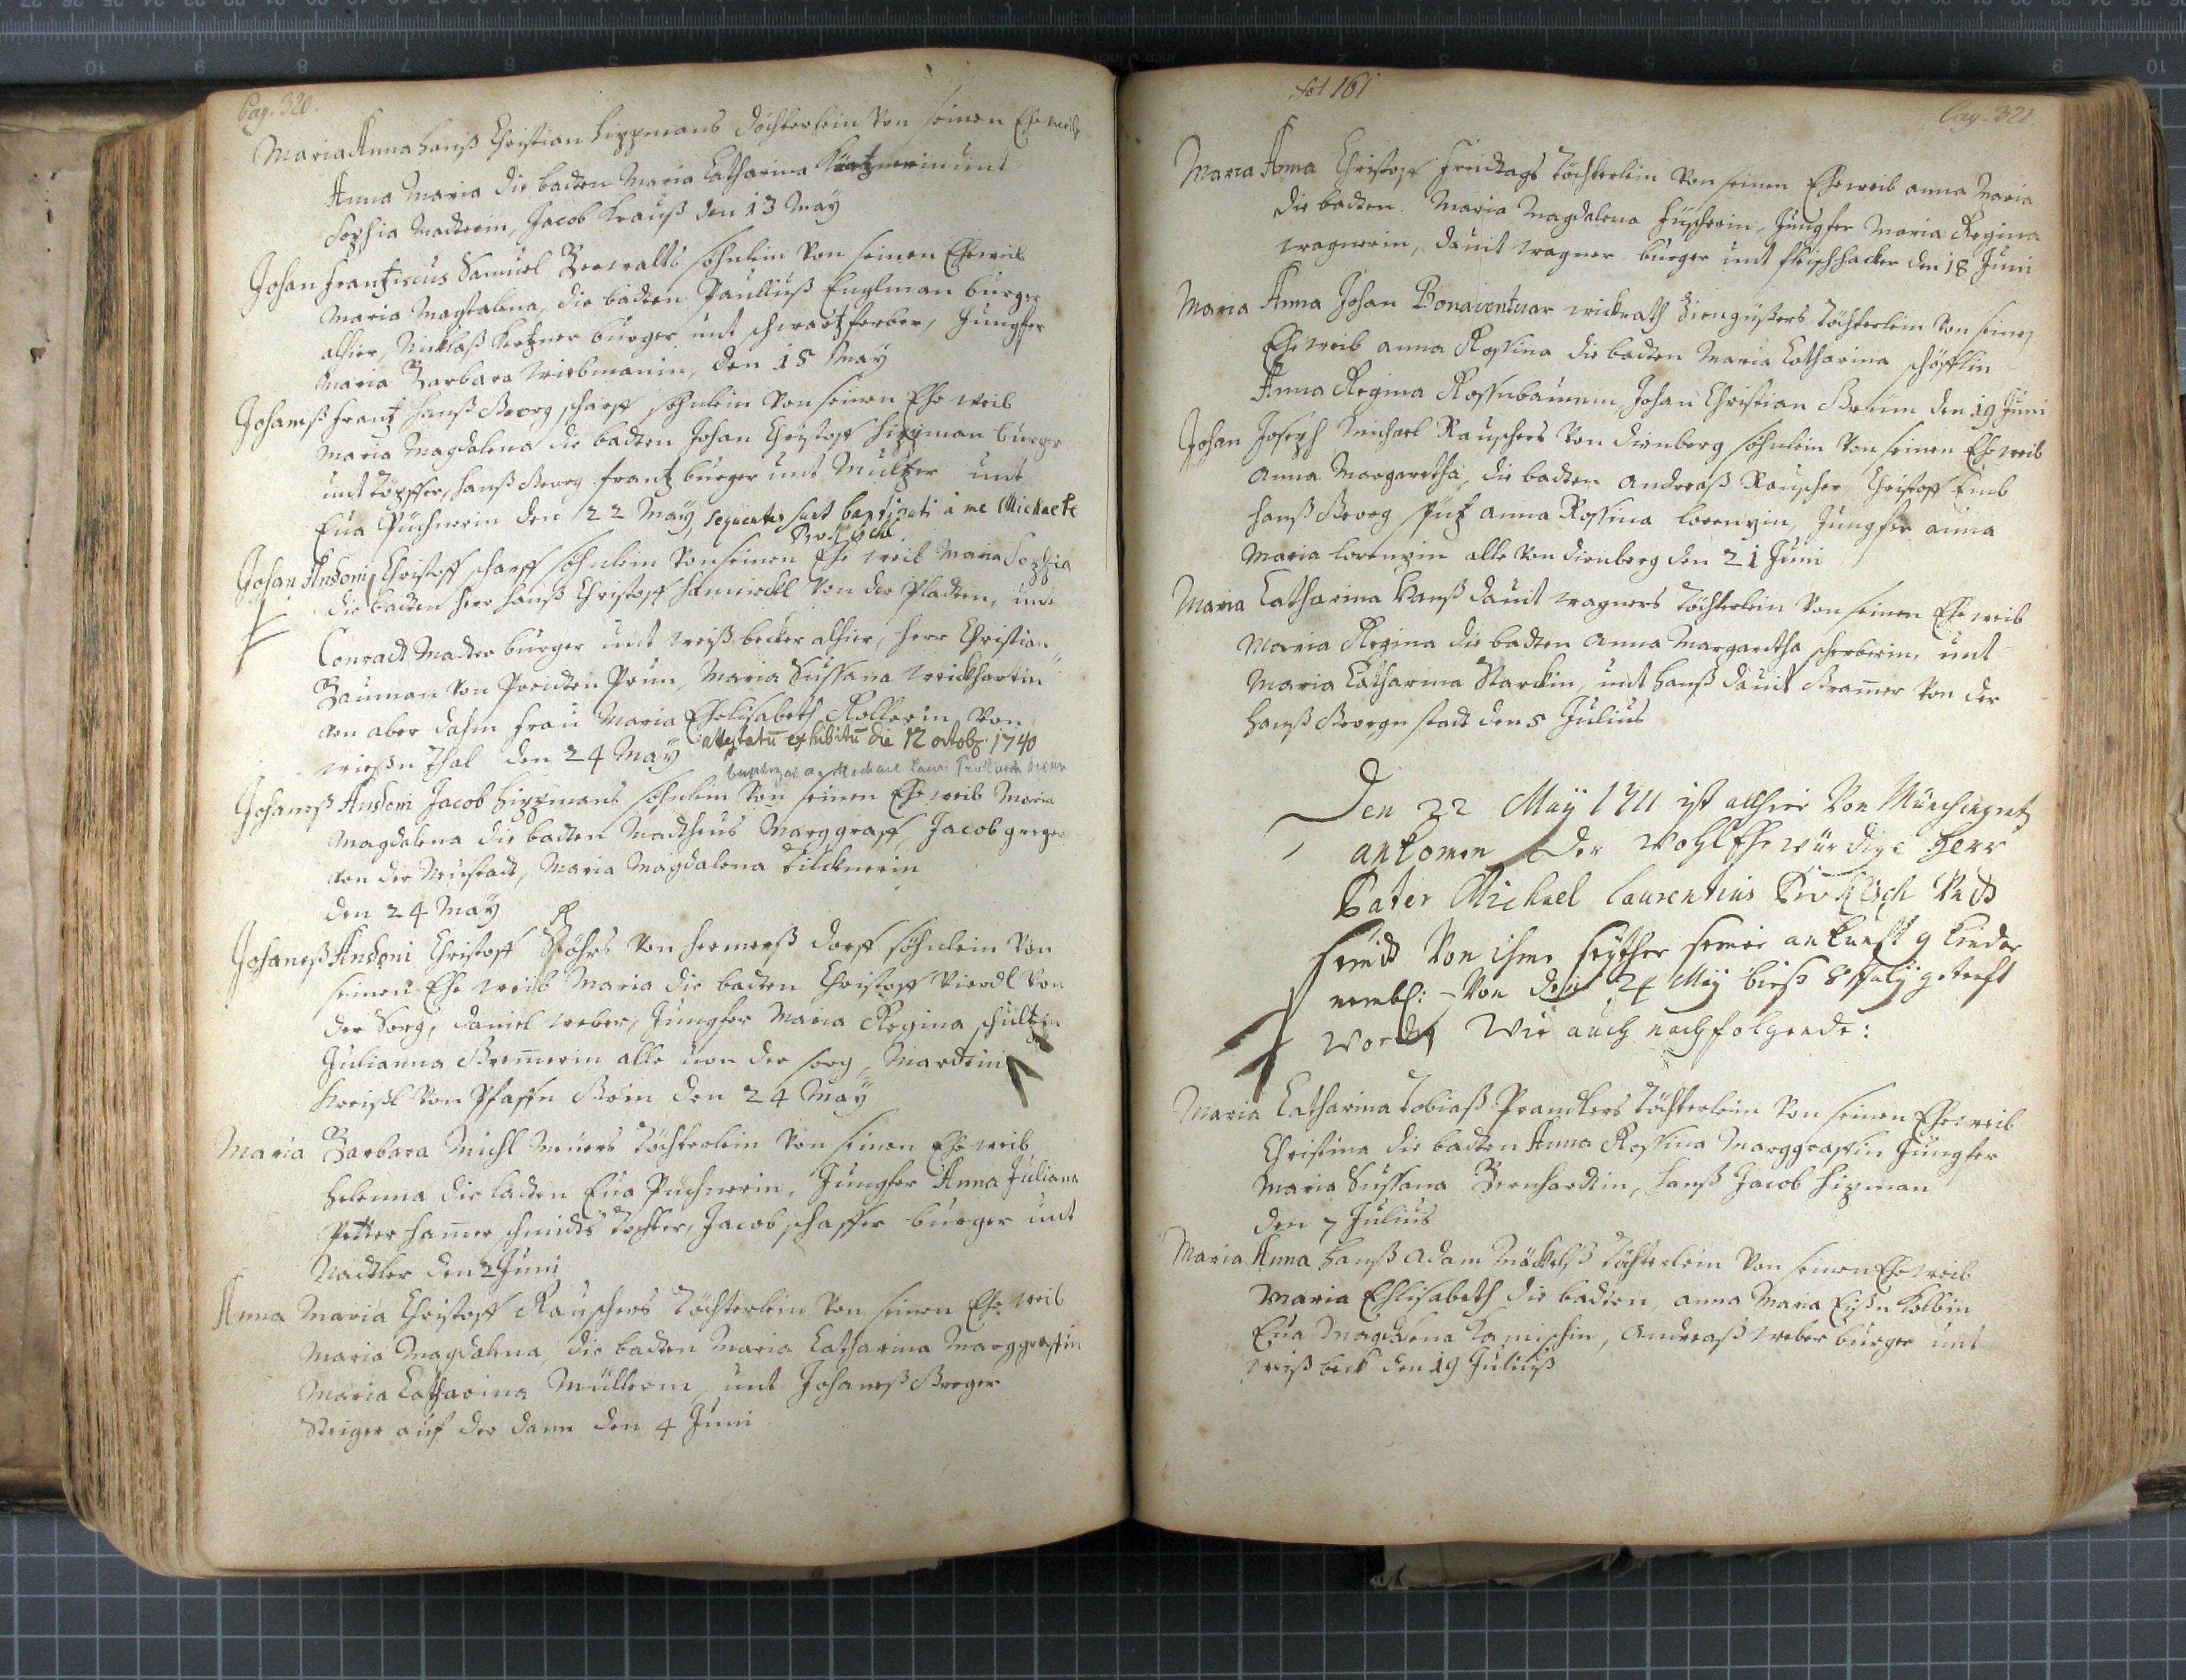 Pag. 320.
Maria Anna Hanß Christian Hippmans döchterlein von seinen Ehe weib
Anna Maria die badten Maria Catharina Kertznerin unt
Sophia Madterin, Jacob Krauß den 13 May
Johan Frantziscus Samuel Beewalts söhnlein von seinen Eheweib
Maria Magtalena, die badten Paulluß Englman burger
alhier, Nicklaß Kertzner burger unt schwartzferber, Jungfer
Maria Barbara Wiebmanin, den 18 May
Johaneß Frantz Hanß Georg scharff söhnlein von seinen Ehe weib
Maria Magdalena die badten Johan Christoff Hippman burger
unt Töpffer, Hanß Georg Frantz burger unt Multzer unt
Eua Puchnerin den 22 May, sequentes sunt baptizati à me Michaele
Prokisch
Johan Andoni Christoff scharff söhnlein von seinen Ehe weib Maria Sophia
die badten Herr Hanß Christoff von der Pladten, unt
Conradt Madter burger unt weiß becker alhier, Herr Christian
Bauman von Preidten Prun, Maria Sussana Weickhartin
von aber dahm Frau Maria Ehelisabeth Kollerin von
wießn Thal den 24 May attestatū exhibitū die 12 octob. 1740
Johaneß Andoni Jacob Hippmans söhnlein von seinen Ehe weib Maria
Magdalena die badten Madtheus Marggraff, Jacob greger
von der Neustadt, Maria Magdalena Bilcknerin
den 24 May
Johaneß Andoni Christoff Röhrs von Hermerß dorff söhnlein von
seinen Ehe weib Maria die badten Christoff Vierdl von
der Sorg, Daniel Weber, Jungfer Maria Regina schultzin
Julianna Bremerin alle von der sorg, Mardtin
Kreißl von Pfaffn Grün den 24 May
Maria Barbara Michl Meuers Töchterlein von seinen Ehe weib
Helenna die badten Eua Puchnerin, Jungfer Anna Juliana
Petter Ham̄er schmidts Tochter, Jacob schaffer burger unt
Nadtler den 2 Juni
Anna Maria Christoff Rauschers Töchterlein von seinen Ehe weib
Maria Magdalena, die badten Maria Catharina Marggraffin
Maria Catharina Müllerin unt Johaneß Greger
Steiger auf der dann den 4 Juni
fol 161
Pag. 321.
Maria Anna Christoff Freidtags Töchterlein von seinen Eheweib anna Maria
die badten. Maria Magdalena Füscherin, Jungfer Maria Regina
wagnerin, dauit wagner burger unt fleischhacker den 18 Juni
Maria Anna Johan Bonaventuar wickrath Ziengüßers Töchterlein von seinen
Eheweib anna Rossina die badten Maria Catharina schöfflin
Anna Regina Rossnbaumin, Johan Christian Braun den 19 Juni
Johan Joseph Michael Rauschers von dirnberg söhnlein von seinen Ehe weib
Anna Margaretha, die badten andreaß Rauscher Christoff Einb
Hanß Georg Pütz anna Rossina lorenzin, Jungfer anna
Maria lorenzin alle von dirnberg den 21 Juni
Maria Catharina Hanß dauit wagners Töchterlein von seinen Ehe weib
Maria Regina die badten anna Margaretha scherberin, unt
Maria Catharina Starckin, unt Hanß dauit Cram̄er von der
Hanß Georgn stadt den 5 Julius
Den 22 Maÿ 1711 ist allhier von
ankomen Der WohlEhrwürdige Herr
Pater Michael Laurentius Prokisch Undt
seindt Von ihme seyther seiner ankunfft 9 Kinder
nembl: Von den 24 Maÿ bieß 8 Julÿ getaufft
worden Wie auch nachfolgende:
Maria Catharina Tobiaß Prandlers Töchterlein von seinen Eheweib
Christina die badten Anna Rossina Marggraffin Jungfer
Maria Sussana Bernhardtin, Hanß Jacob Hipman
den 7 Julius
Maria Anna Hanß Adam Möckelß Töchterlein von seinen Eheweib
Maria Ehlisabeth die badten, anna Maria Eißn Kolbin
Eua Magdalena Hamischin, Andreaß weber burger unt
weiß beck den 19 Juliuß